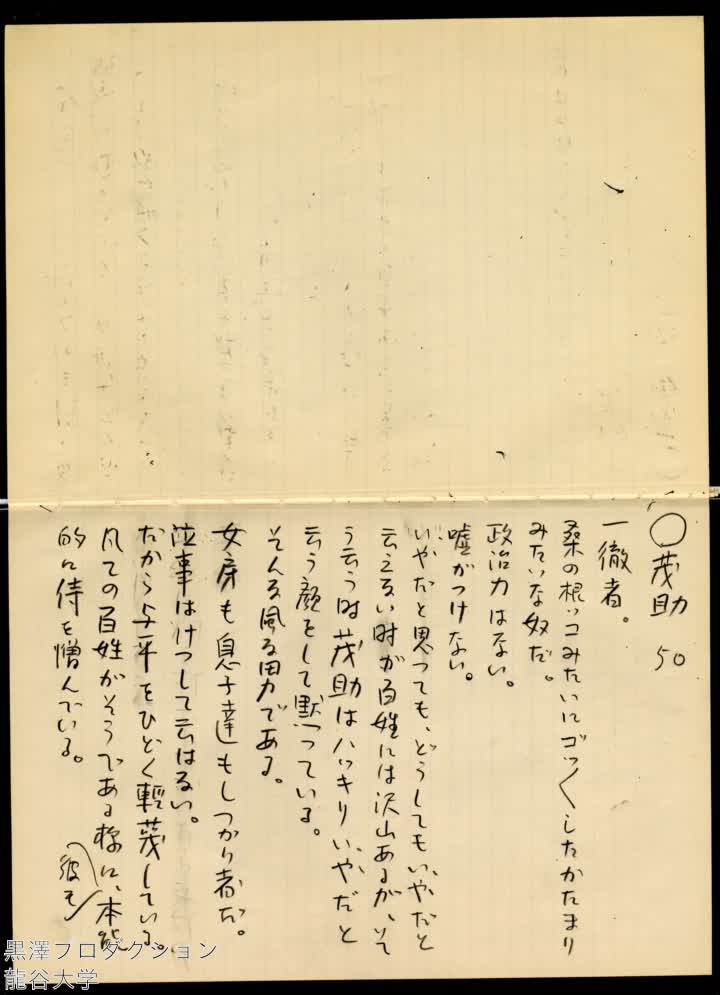 ○茂助 50
一徹者。
桑の根ッコみたいにゴツ〱したかたまり
みたいな奴だ。
政治力はない。
嘘がつけない。
いやだと思つても、どうしてもいやだと
云えない時が百姓には沢山あるが、そ
う云う時茂助はハッキリいやだと
云う顔をして黙つている。
そんな風な男である。
女房も息子達もしつかり者だ。
泣事はけつして云はない。
だから与平をひどく軽蔑している。
凡ての百姓がそうである様に、彼も本能
的に侍を憎んでいる。
黒澤プロダクション
龍谷大学